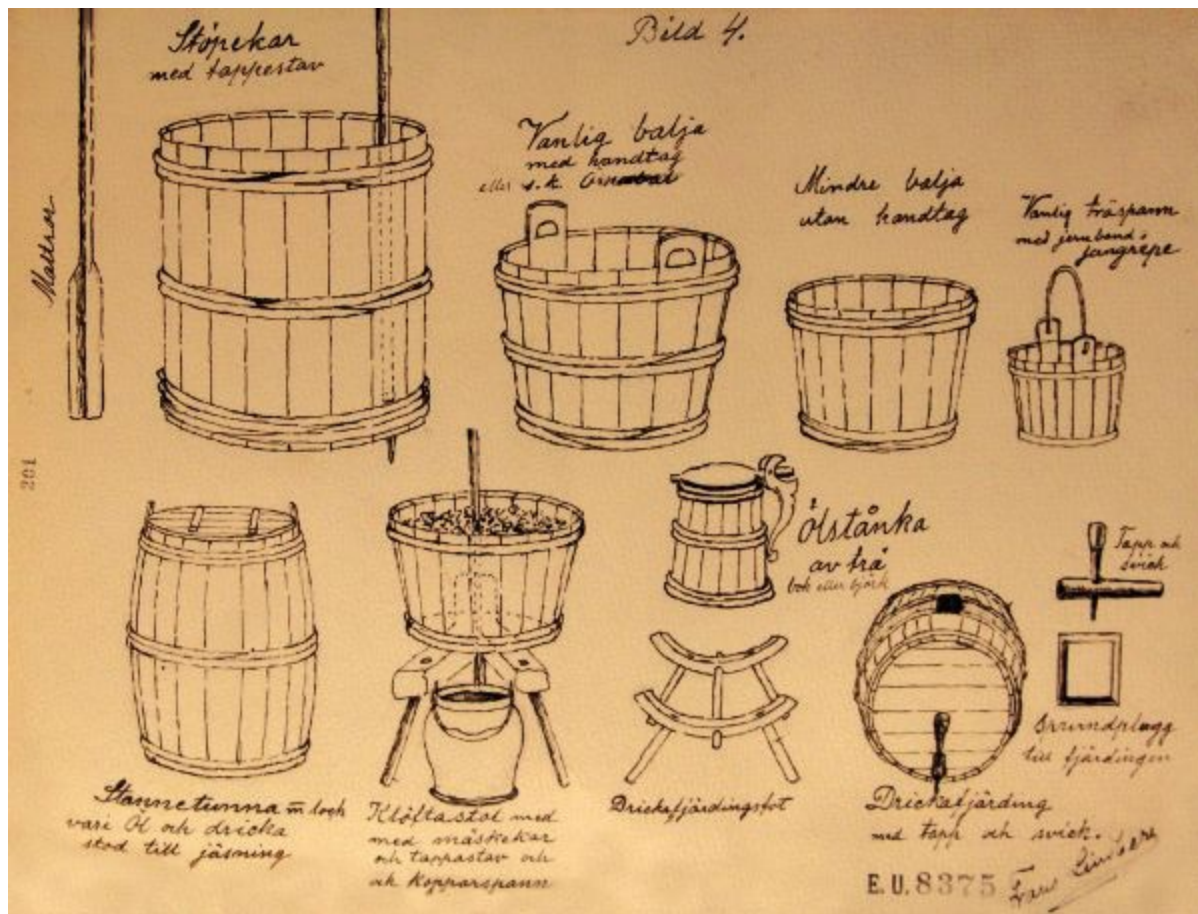 Bild 4.
Stöpekar
med tappestav
Mältror
Vanlig balja
med handtag
eller s.k.
Mindre balja
utan handtag
Vanlig träspann
med jernband.
201
Ölstånka
av trä
bok eller björk
Tapp och
svick
Stannetunna m̅ lock
vari Öl och dricka
stod till jäsning
Klöftastol med
med mäskekar
och tappastav och
och Kopparspann
Drickafjärdingsfot
Drickafjärding
med tapp och svick.
till fjärdingen
E.U. 8375